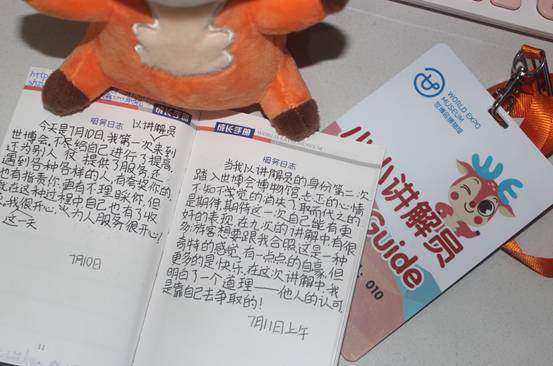 http
成长手册
服务日志
以讲解员
今天是7月10日,我第一次来到
世博会,不尽给自己进行了提高,
还为别人仅提供了服务,还
遇到各种各样的人,有夸奖你的,
也有指责你,更有不理睬你,但
就在这种过程中自己也有了收
我很开心,为人服务很开心!
这一天
7月10日
11
成长手册
WORLD EXPO MUSEUM
服务日志
当我以讲解员的身份第一次
踏入世博会博物馆,忐忑的心情
不知不觉的消失了,取而代之的
是期待,期待这一次自己能有更
好的表现,在九次的讲解中,有很
多游客想要跟我合照,这是一种
奇特的感觉,有一点点的自豪,但
更多的是快乐,在这次讲解中,我
明白了一个道理——他人的认可,
是靠自己去争取的!
7月11日上午
WORLD EXPO
MUSEUM
世博会博物馆
小小讲解员
Guide
010